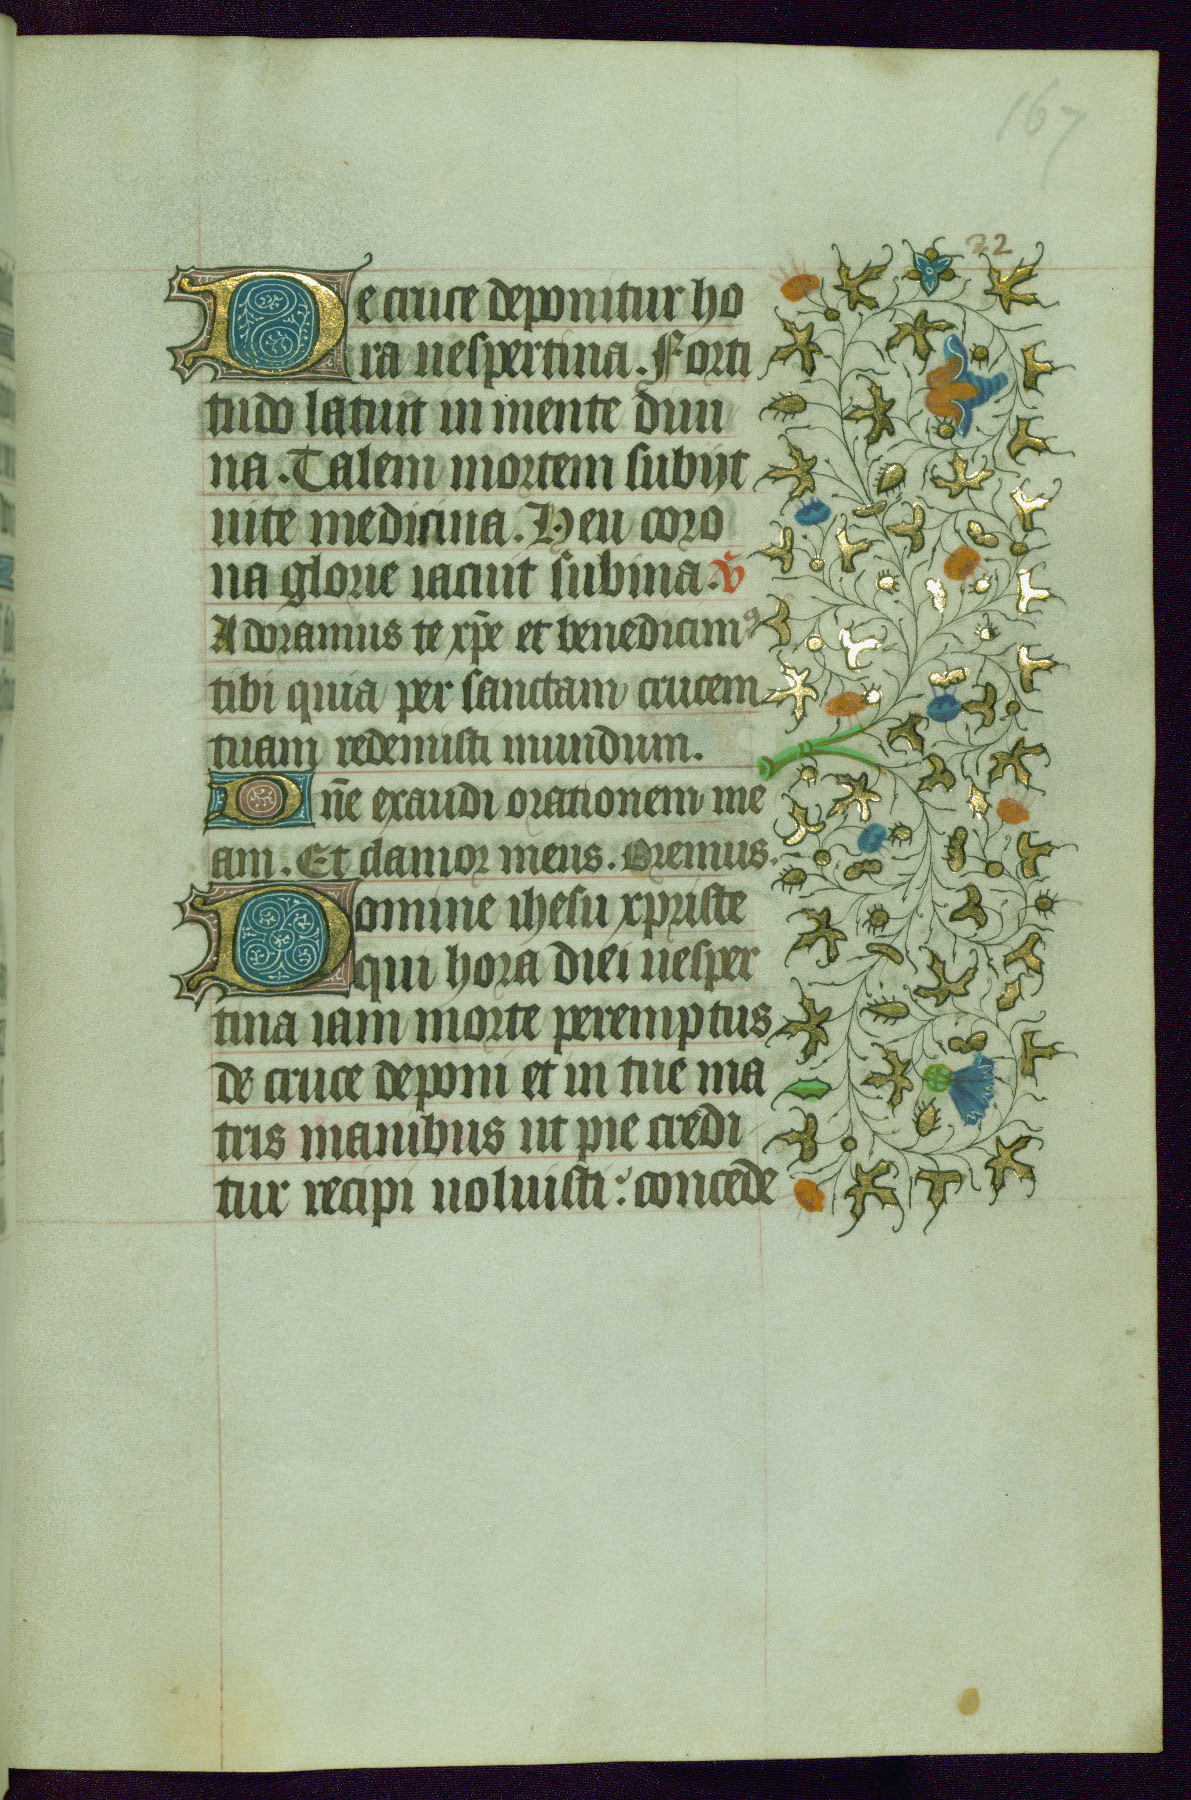 167
22
De cruce deponitur ho
ra uespertina. Forti
tudo latuit in mente diui
na. Talem mortem subijt
uite medicina. Heu coro
na glorie iacuit subina. v̄
Adoramus te xp̄e et benedicimꝰ
tibi quia per sanctam crucem
tuam redemisti mundum.
Dn̄e exaudi orationem me
am. Et clamor meus. Oremus.
Domine ihesu xpriste
qui hora diei uesper
tina iam morte peremptus
de cruce deponi et in tue ma
tris manibus ut pie credi
tur recipi uoluisti: concede